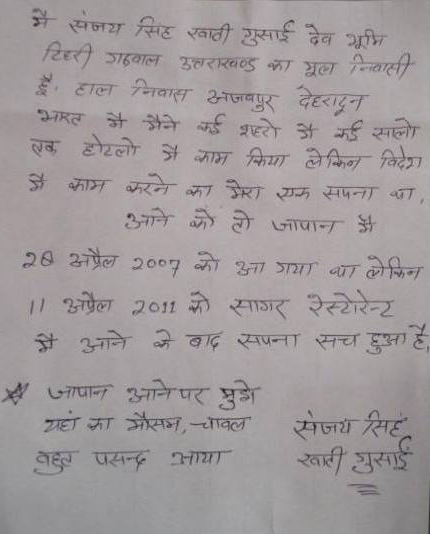 मै संजय सिंह खाती गुसाई देव भूमि
टिहरी गढवाल उत्तराखण्ड का मूल निवासी
हूँ, हाल निवास अजबपुर देहरादून
भारत मै मैने कई शहरो मै कई सालो
तक होटलो मै काम किया लेकिन विदेश
मै काम करने का मेरा एक सपना था,
आने को तो जापान मै
28 अप्रैल 2007 को आ गया था लेकिन
11 अप्रैल 2011 को सागर रेस्टोरेन्ट
मै आने के बाद सपना सच हुआ है,
जापान आने पर मुझे
यहां का मौसम, चावल
बहुत पसन्द आया
संजय सिंह
खाती गुसाई